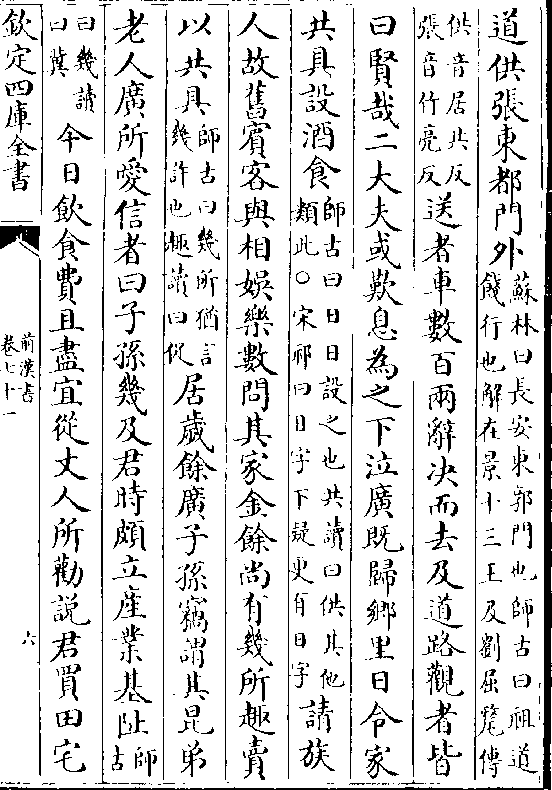 道供張東都門外蘇林曰長安東郭門也師古曰祖道餞行也解在景十三王及劉屈氂傳
供音居共反張音竹亮反送者車數百兩辭決而去及道路觀者皆
曰賢哉二大夫或歎息為之下泣廣既歸鄉里日令家
共具設酒食師古曰日日設之也共讀曰供其他類此○宋祁曰日字下疑更有日字請族
人故舊賓客與相娛樂數問其家金餘尚有幾所趣賣
以共具師古曰幾所猶言幾許也趣讀曰促居歲餘廣子孫竊謂其昆弟
老人廣所愛信者曰子孫幾及君時頗立産業基阯師古
曰幾讀曰冀今日飲食費且盡宜從丈人所勸說君買田宅
欽定四庫全書
前漢書
卷七十一
六